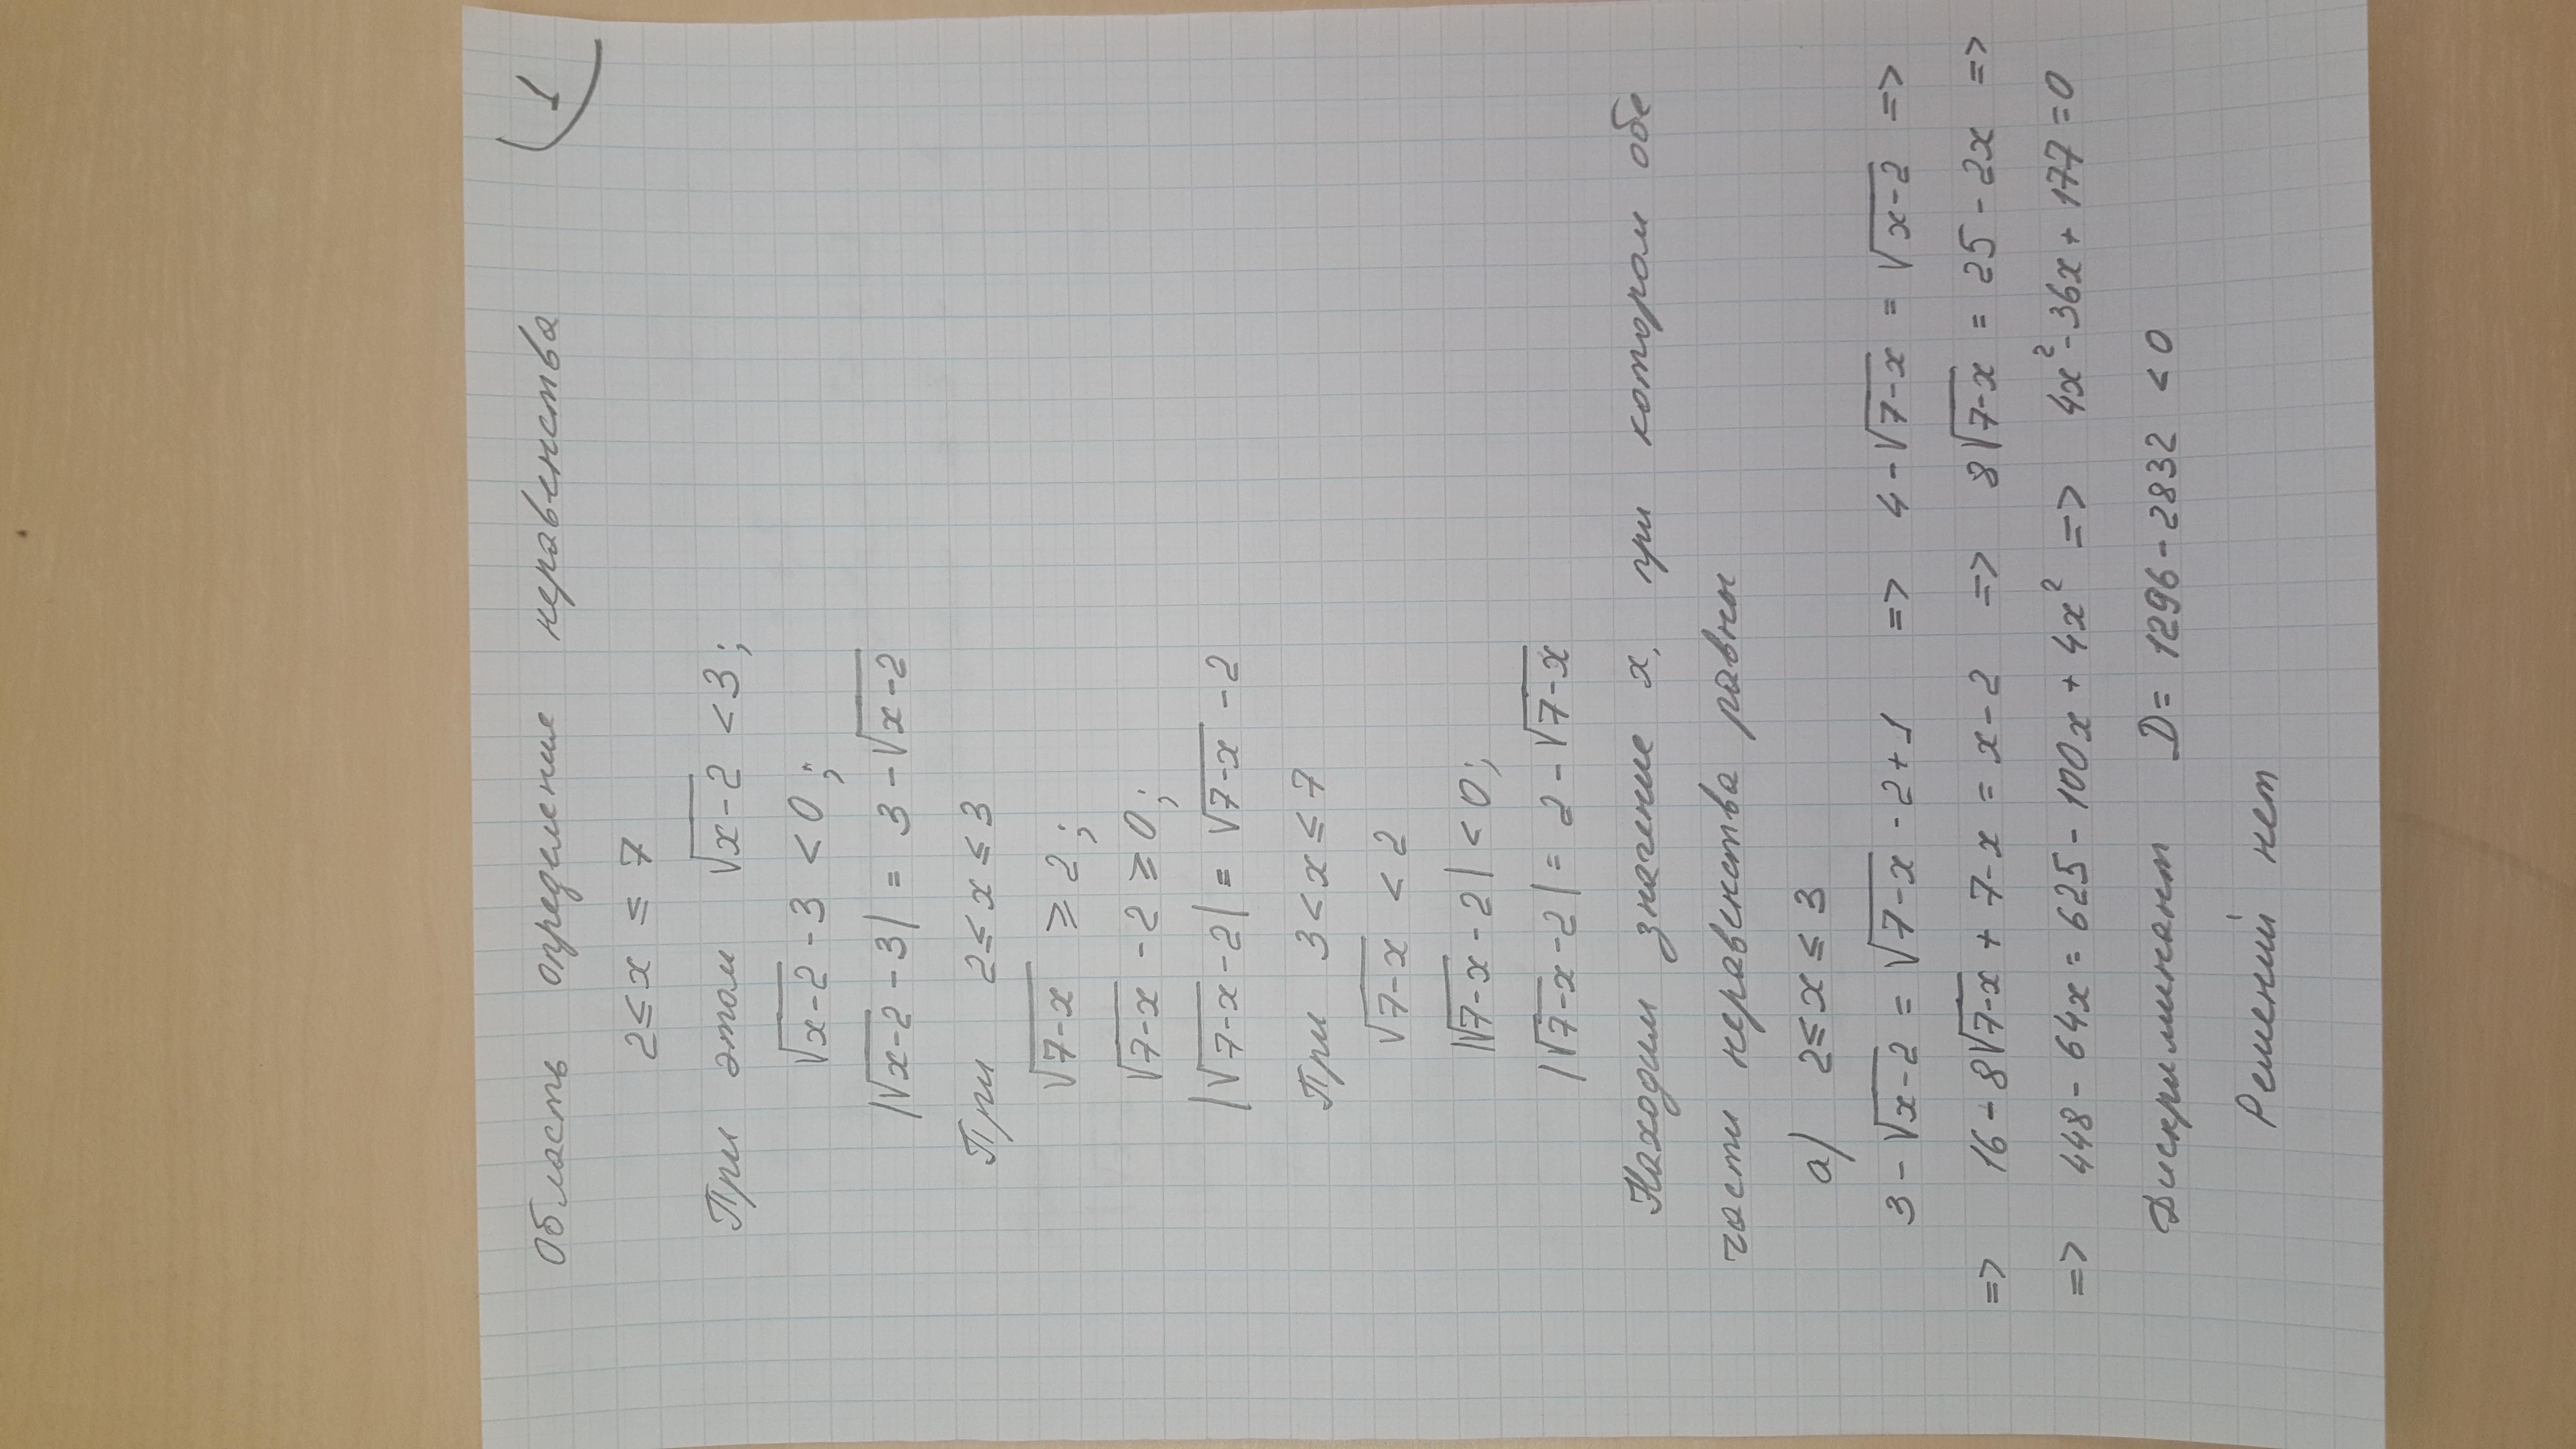 1
Область определения неравенства
2 ≤ x ≤ 7
При этом √(x-2) < 3;
√(x-2) - 3 < 0;
|√(x-2) - 3| = 3 - √(x-2)
При 2 ≤ x ≤ 3
√(7-x) ≥ 2;
√(7-x) - 2 ≥ 0;
|√(7-x) - 2| = √(7-x) - 2
При 3 < x ≤ 7
√(7-x) < 2
|√(7-x) - 2| < 0;
|√(7-x) - 2| = 2 - √(7-x)
Находим значение x, при котором обе
части неравенства равны
а) 2 ≤ x ≤ 3
3 - √(x-2) = √(7-x) - 2 + 1 => 4 - √(7-x) = √(x-2) =>
=> 16 - 8√(7-x) + 7 - x = x - 2 => 8√(7-x) = 25 - 2x =>
=> 448 - 64x = 625 - 100x + 4x² => 4x² - 36x + 177 = 0
Дискриминант D = 1296 - 2832 < 0
Решений нет